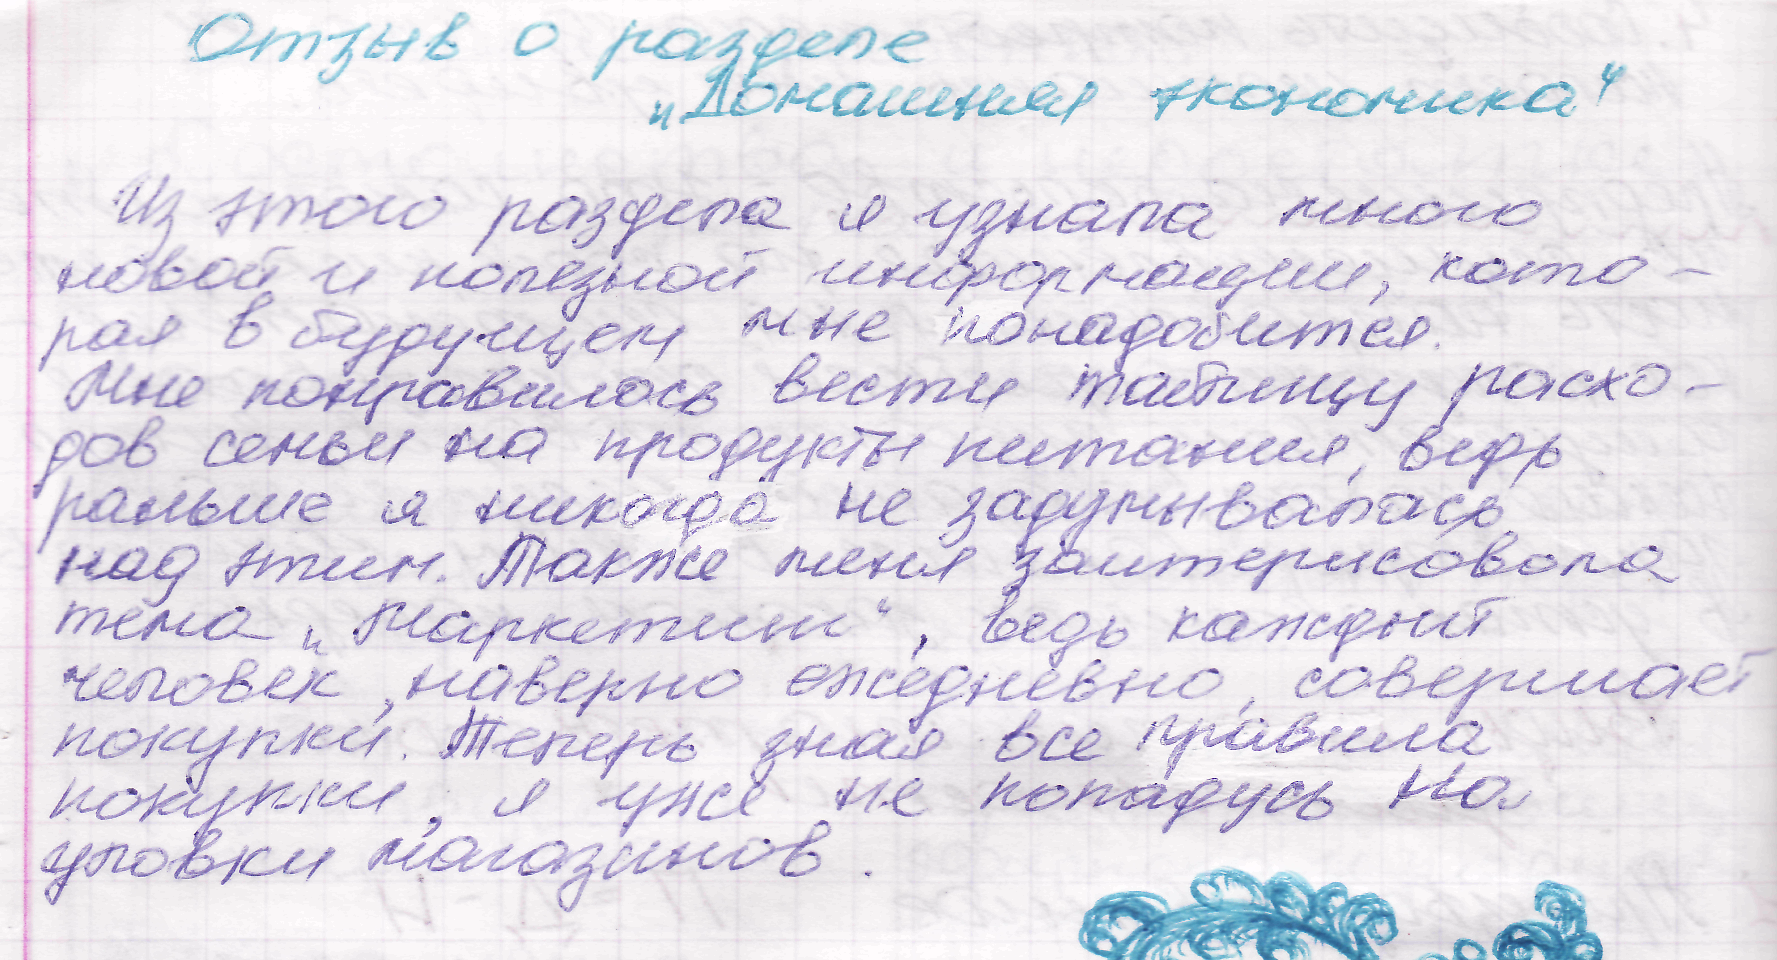 Отзыв о разделе
„Домашняя экономика"
Из этого раздела я узнала много
новой и полезной информации, кото-
рая в будущем мне понадобится.
Мне понравилось вести таблицу расхо-
дов семьи на продукты питания, ведь
раньше я никогда не задумывалась
над этим. Также меня заитерисовала
тема „Маркетинг", ведь каждый
человек, наверно ежедневно, совершает
покупки. Теперь зная все правила
покупки, я уже не попадусь на
уловки магазинов.